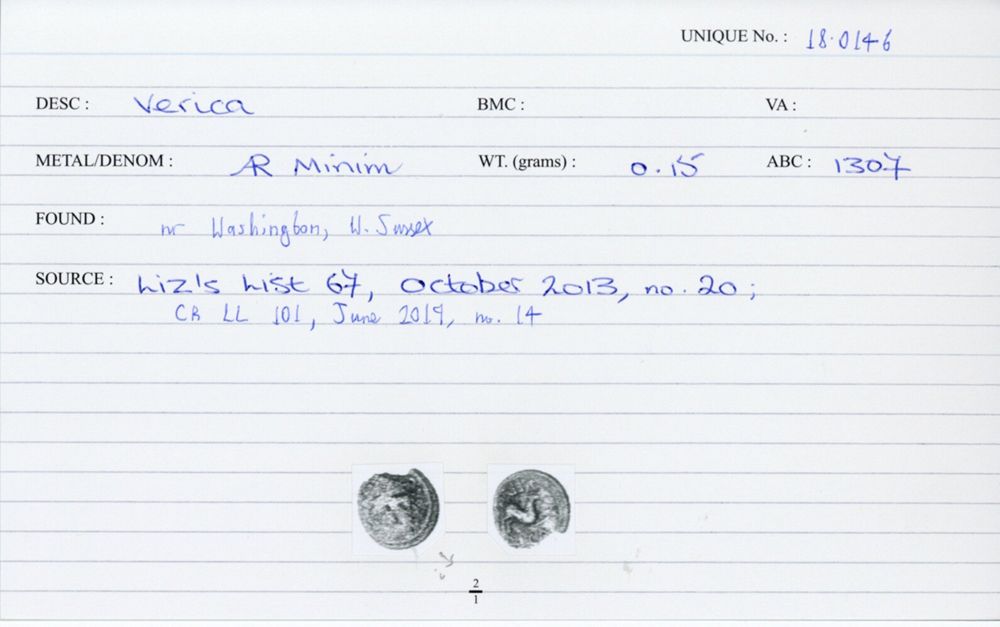 UNIQUE No. : 18.0146
DESC : Verica BMC : VA :
METAL/DENOM : AR Minim WT. (grams) : 0.15 ABC : 1307
FOUND : nr Washington, W. Sussex
SOURCE : Liz's List 67, October 2013, no. 20;
CR LL 101, June 2019, no. 14
2
1